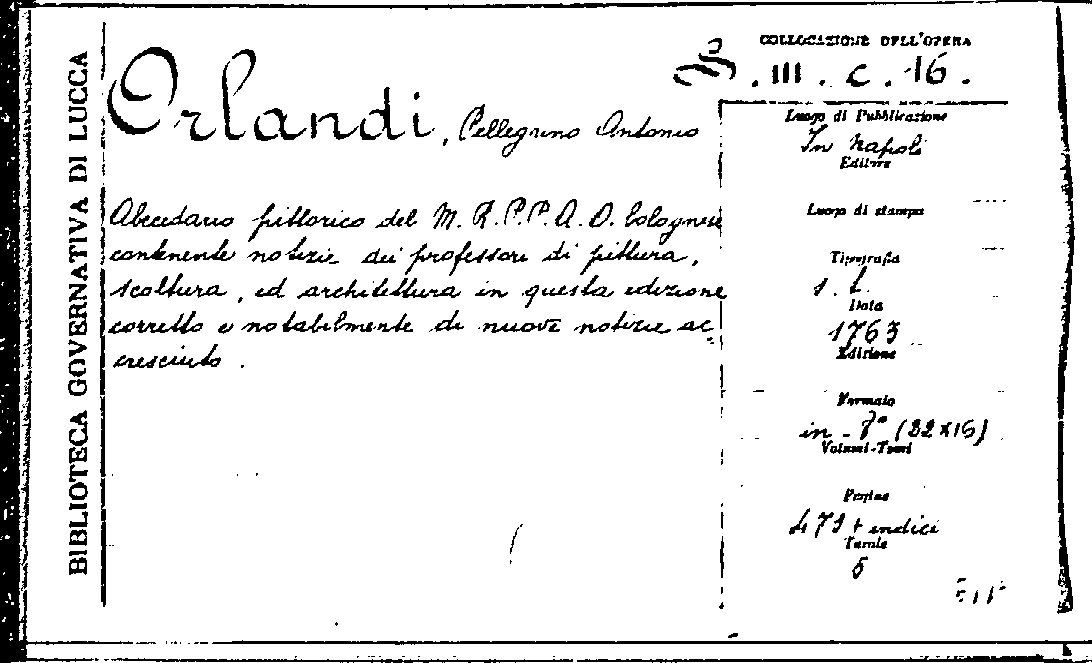 BIBLIOTECA GOVERNATIVA DI LUCCA
Orlandi, Pellegrino Antonio
Abecedario pittorico del M. R. P. P. A. O. bolognese
contenente notizie dei professori di pittura,
scoltura, ed architettura in questa edizione
corretto e notabilmente di nuove notizie ac-
cresciuto.
COLLOCAZIONE DELL'OPERA
. III . C . 16 .
Luogo di Pubblicazione
In Napoli
Editore
Luogo di stampa
Tipografia
s. t.
Data
1763
Edizione
Formato
in - 8° (22x16)
Volumi-Tomi
Pagine
471 + indici
Tavole
5